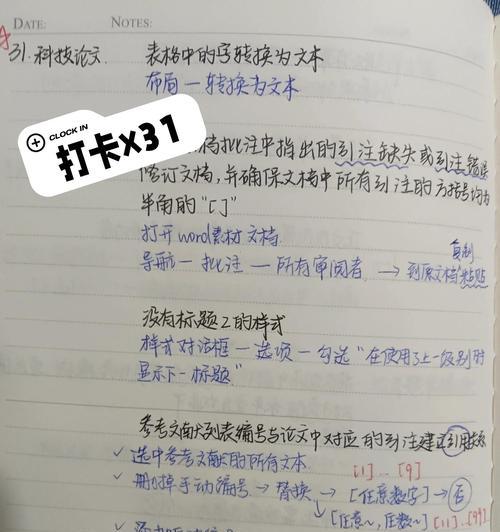 DATE: NOTES:
31.科技论文 表格中的字转换为文本
布局一转换为文本
CLOCK IN
打卡X31
档批注中指出的引注缺失或引注错误
修订文档,并确保文档中所有引注的方括号均为
半角的"[]"
打开word素材文档.
复制
导航一批注一所有审阅者. → 到原文档粘贴
没有标题2的样式
样式对话框一选项一勾选"在使用了上一级别时
显示下一标题"
参考文献列表编号与论文中对应的引注建立引用关系
✓选中参考文献的所有文本.
[1]...[9]
✓删掉手动编号.→替换→[任意数字]→否
[任意~任数~] [1]...[99]